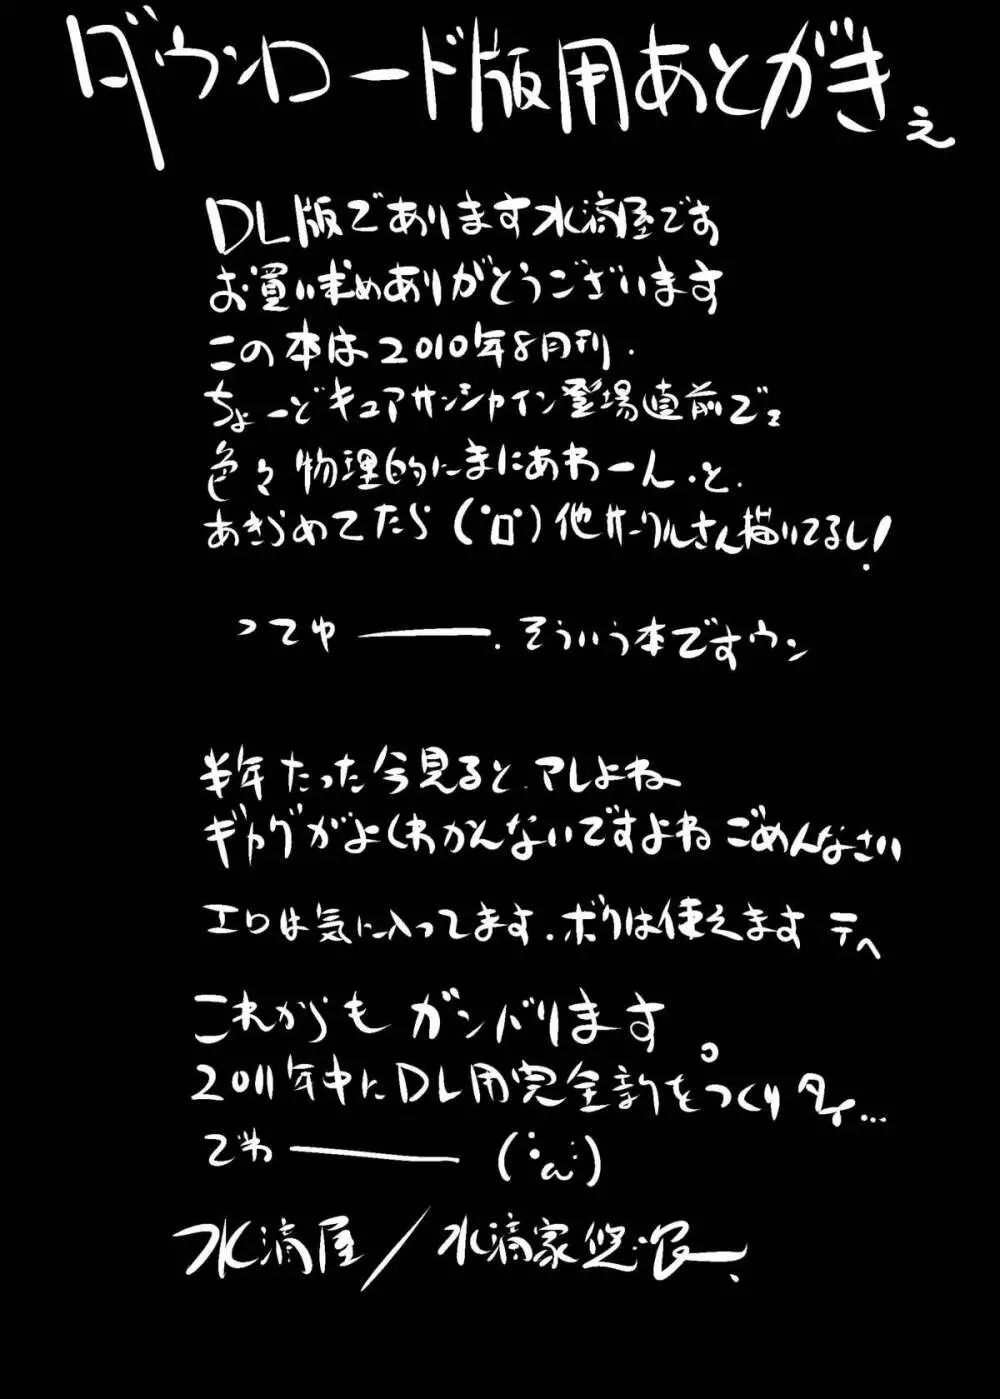 ダウンロード版用あとがきぇ
DL版であります水滴屋です
お買い求めありがとうございます
この本は2010年8月刊.
ちょーどキュアサンシャイン登場直前でェ
色々物理的にまにあわーん.と.
あきらめてたら(゚Д゚)他サークルさん描いてるし!
ってゆ――.そういう本ですウン
半年たった今見ると.アレよね
ギャグがよくわかんないですよね ごめんなさい
エロは気に入ってます.ボクは使えます テヘ
これからもガンバリます。
2011年中にDL用完全新をつくりタイ...
でわ――
水滴屋/水滴家